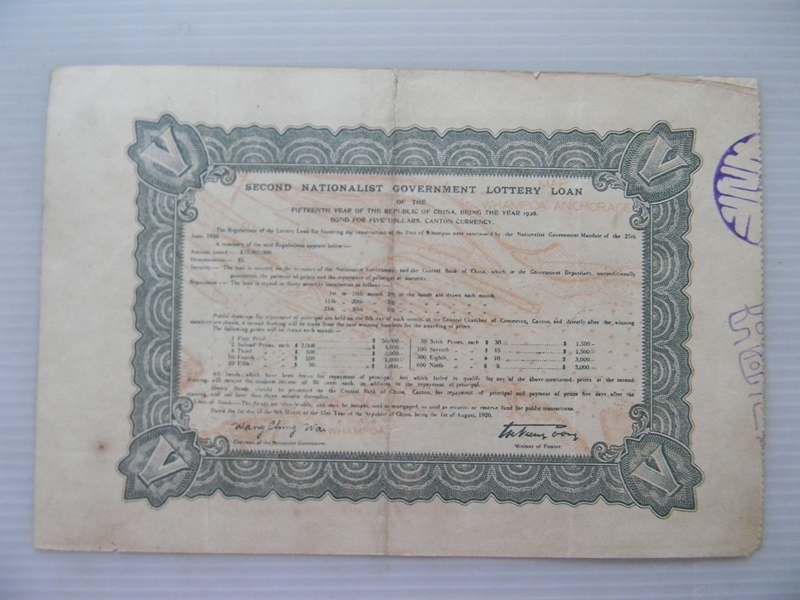 SECOND NATIONALIST GOVERNMENT LOTTERY LOAN
OF THE
WHAMPOA ANCHORAGE
FIFTEENTH YEAR OF THE REPUBLIC OF CHINA, BEING THE YEAR 1926.
BOND FOR FIVE DOLLARS, CANTON CURRENCY.
The Regulations of the Lottery Loan for financing the construction of the Port of Whampoa were sanctioned by the Nationalist Government Mandate of the 25th
June, 1926.
A summary of the said Regulations appears below:—
Amount issued:—
Denomination:— $5.
Security:— The loan is secured on the revenues of the Nationalist Government, and the Central Bank of China, which is the Government Depositary, unconditionally
guarantees the payment of prizes and the repayment of principal at maturity.
Repayment:— The loan is repaid in thirty monthly instalments as follows:—
1st to 10th month of the bonds are drawn each month.
11th - 20th
21st - 30th
Public drawings for repayment of principal are held on the day of each month, at the General Chamber of Commerce, Canton, and directly after the winning
numbers are drawn, a second drawing will be made from the said winning numbers for the awarding of prizes.
The following prizes will be drawn each month:—
1 First Prize $ 50,000 50 Sixth Prizes, each $ 30 $ 1,500
2 Second Prizes, each $ 100 Seventh 15 1,500
4 Third 500 2,000 300 Eighth 10 3,000
10 Fourth 100 1,000 600 Ninth 5 3,000
20 Fifth 50 1,000
All bonds which have been drawn for repayment of principal, but which failed to qualify for any of the above-mentioned prizes at the second
drawing, will receive the uniform of 50 cents each in addition to the repayment of principal.
Drawn Bonds should be presented to the Central Bank of China, Canton, for repayment of principal and payment of prizes five days after the
drawing, and not later than three months thereafter.
and may be bought, sold or mortgaged, or used as security or reserve fund for public transactions.
Dated the 1st day of the 8th Month of the 15th Year of the Republic of China, being the 1st of August, 1926.
Wang Ching Wai
WHAMPOA
Chairman of the Nationalist Government
Minister of Finance